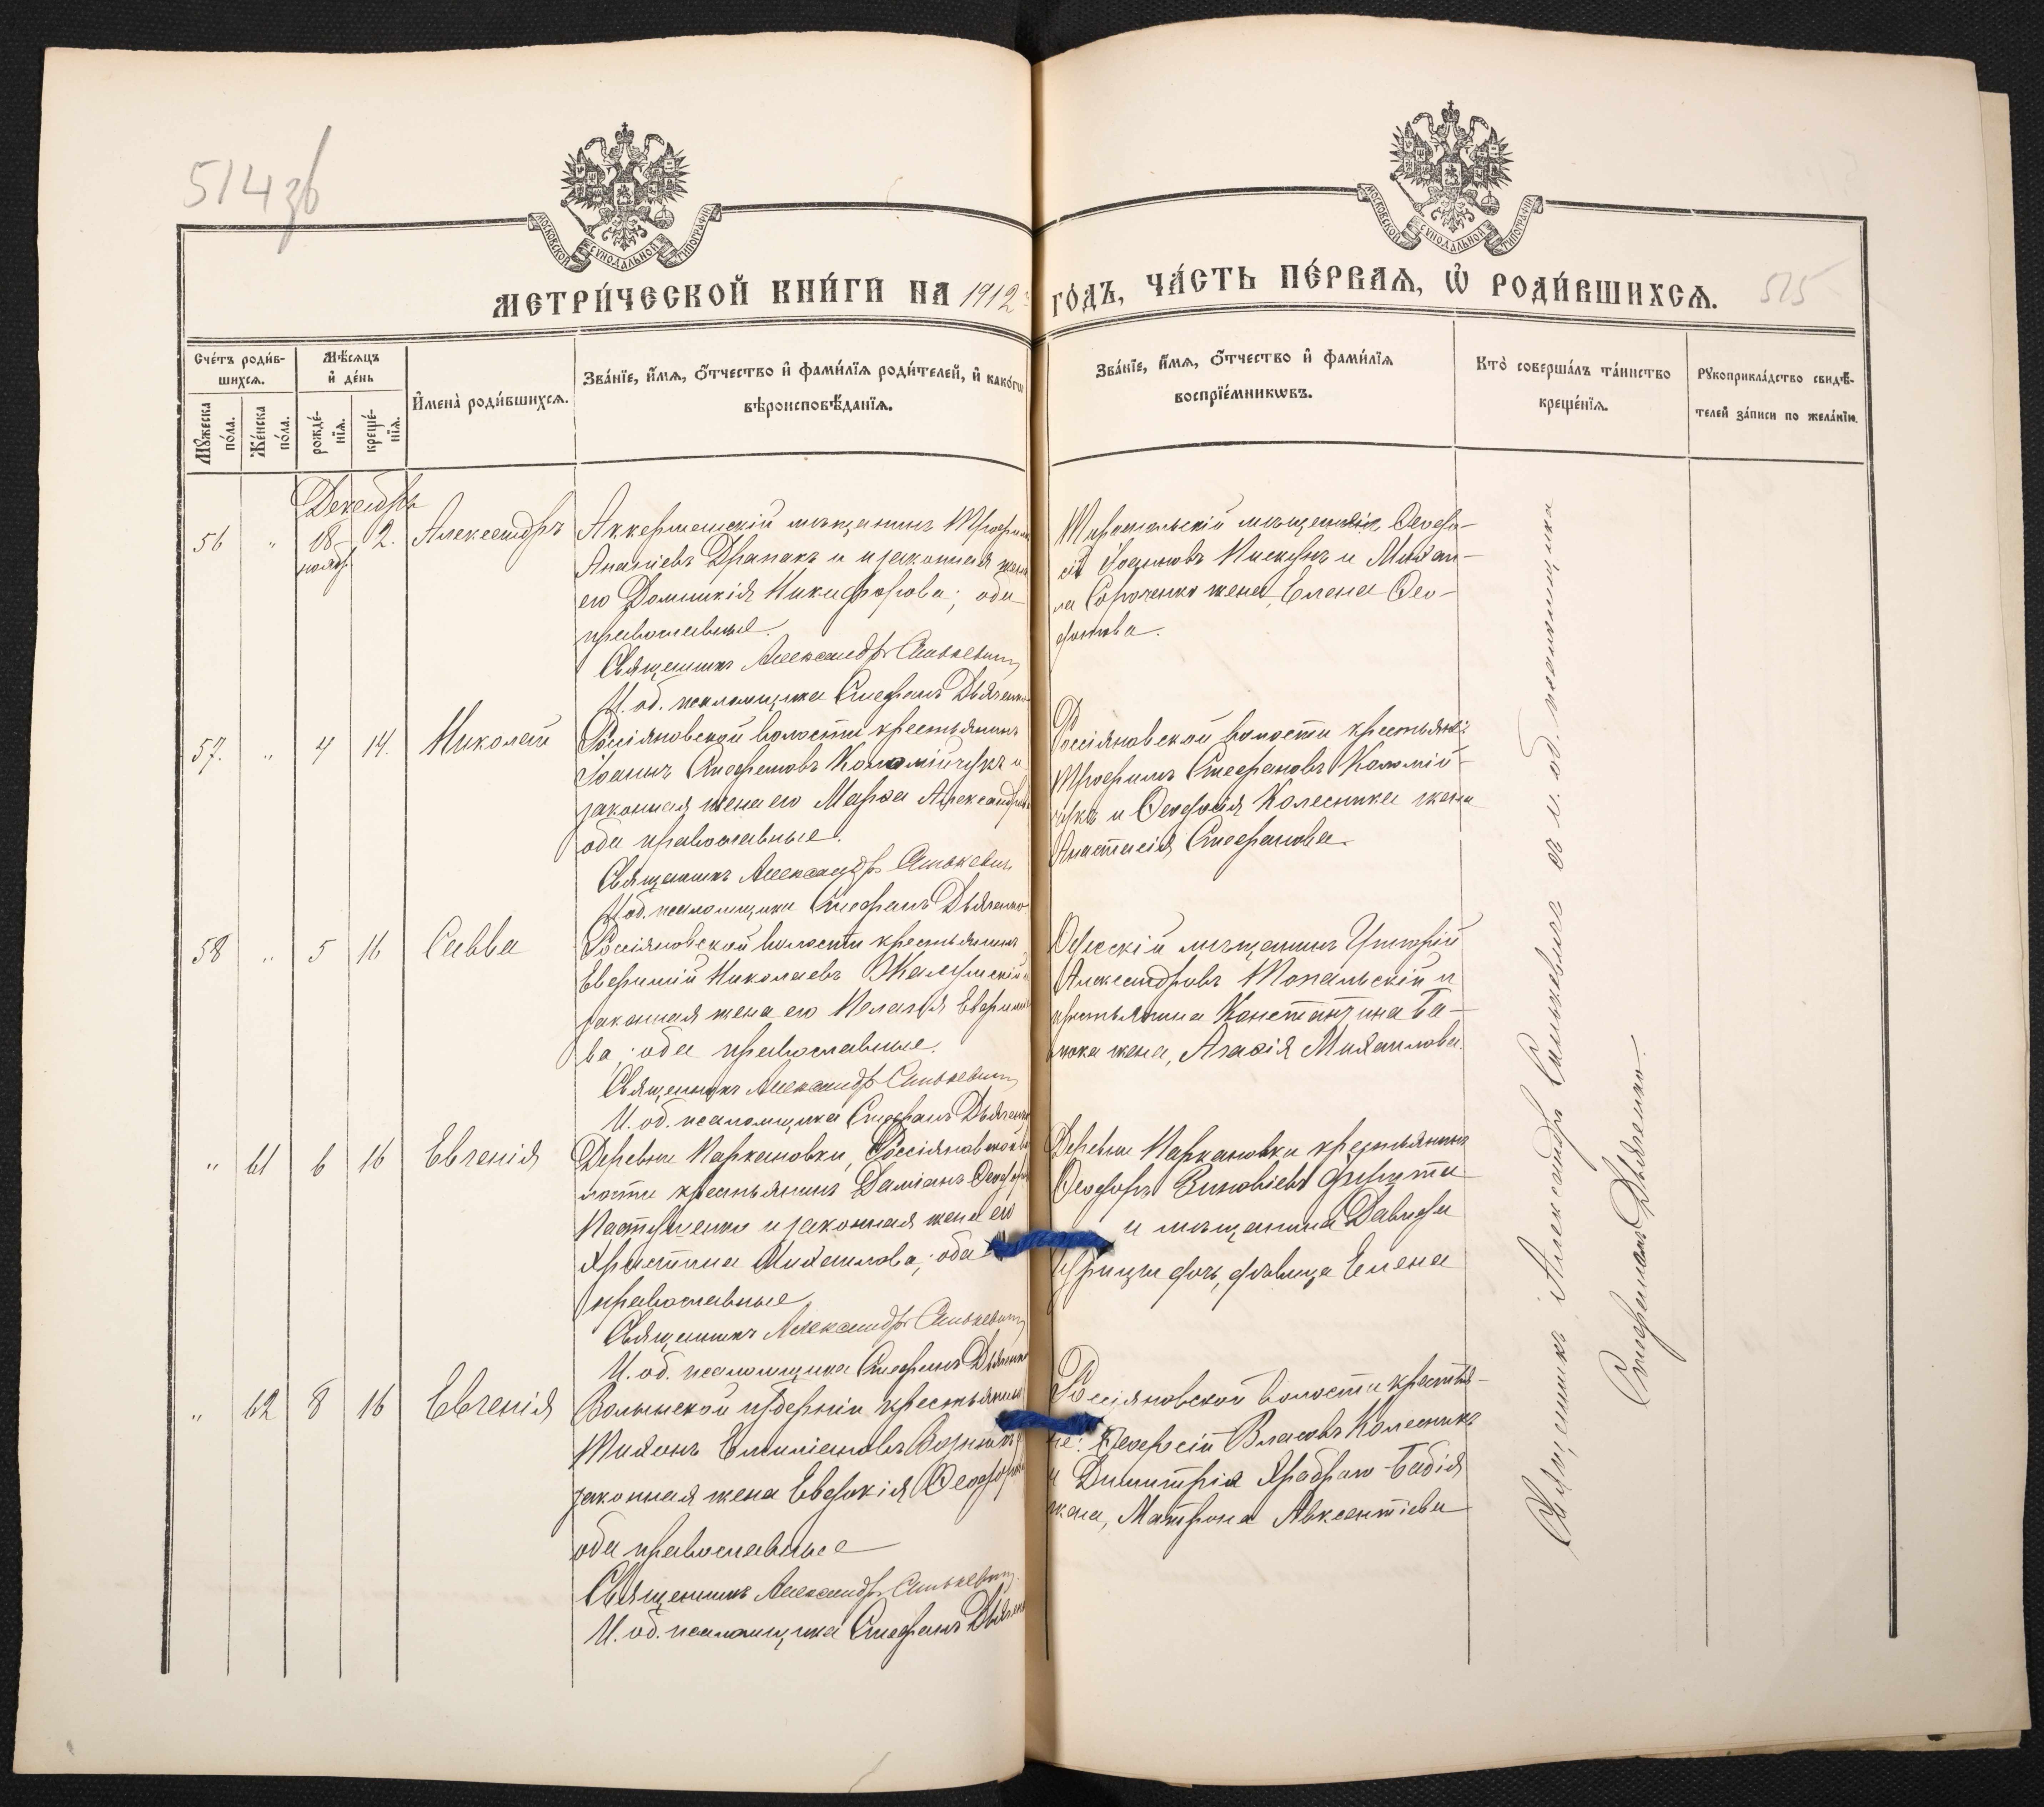 514зв
МОСКОВСКОЙ СѴНОДАЛЬНОЙ ТИПОГРАФІИ
МОСКОВСКОЙ СѴНОДАЛЬНОЙ ТИПОГРАФІИ
МЕТРИ́ЧЕСКОЙ КНИ́ГИ НА 1912 ГО́ДЪ, ЧА́СТЬ ПЕ́РВАѦ, Ѡ҆ РОДИ́ВШИХСѦ.
515
Сче́тъ роди́в-
шихсѧ.
Мꙋ́жеска по́ла.
Же́нска по́ла.
Мѣ́сѧцъ
и҆ де́нь
рожде́-
нїѧ.
креще́-
нїѧ.
И҆мена̀ роди́вшихсѧ.
Зва́нїе, и҆́мѧ, ѻ҆́тчество и҆ фами́лїѧ роди́телей, и҆ како́гѡ
вѣроисповѣ́данїѧ.
Зва́нїе, и҆́мѧ, ѻ҆́тчество и҆ фами́лїѧ
воспрїе́мникѡвъ.
Кто̀ соверша́лъ та́инство
креще́нїѧ.
Рꙋкоприкла́дство свидѣ́-
телей за́писи по жела́нїю.
Декабрь
56 " 18 2. Александръ
ноябр.
Аккерманскій мѣщанинъ Трофим
Ананіевъ Драпакъ и законная жена
его Домникія Никифорова; оба
православные.
Священникъ Александръ Синькевичъ
И. об. псаломщика Стефанъ Дьяченко
Тираспольскій мѣщанинъ Ѳеодо-
сій Іоанновъ Пискунъ и Михаи-
ла Сороченко жена, Елена Ѳео-
дотова.
57. " 4 14. Николай
Россіяновской волости крестьянинъ
Іоаннъ Стефановъ Коломійчукъ и
законная жена его Марѳа Александров
оба православные.
Священникъ Александръ Синькевичъ
И об. псаломщика Стефанъ Дьяченко
Россіяновской волости крестьяне:
Трофимъ Стефановъ Коломій-
чукъ и Ѳеодосія Колесника жена
Анастасія Стефанова.
58 " 5 16 Савва
Россіяновской волости крестьянинъ
Евфимій Николаевъ
законная жена его Пелагія Евфимо
ва; оба православные.
Священникъ Александръ Синькевичъ
И. об. псаломщика Стефанъ Дьяченко
Одесскій мѣщанинъ Григорій
Александровъ Топальскій и
крестьянина Константина Ба-
жена, Агаѳія Михаилова.
" 61 6 16 Евгенія
Деревни Паркановки, Россіяновской во
лости крестьянинъ Даміанъ Ѳеодор
и законная жена его
Христина Михаилова; оба
православные
Священникъ Александръ Синькевичъ
И. об. псаломщика Стефанъ Дьяченко
Деревни Паркановки крестьянинъ
Ѳеодоръ Зиновіевъ
и мѣщанина Давида
дочь, дѣвица Елена
" 62 8 16 Евгенія
Волынской губерніи крестьянинъ
Тихонъ Емиліановъ
законная жена Евдокія Ѳеодоро
оба православные
Священникъ Александръ Синькевичъ.
И. об. псаломщика Стефанъ Дьяченко
Россіяновской волости крестья-
не: Ѳеодосій Власовъ Колесникъ
и Димитрія Храброго-Бабія
жена, Матрона Авксентіева
Священникъ Александръ Синькевичъ съ и. об. псаломщика
Стефаномъ Дьяченко.